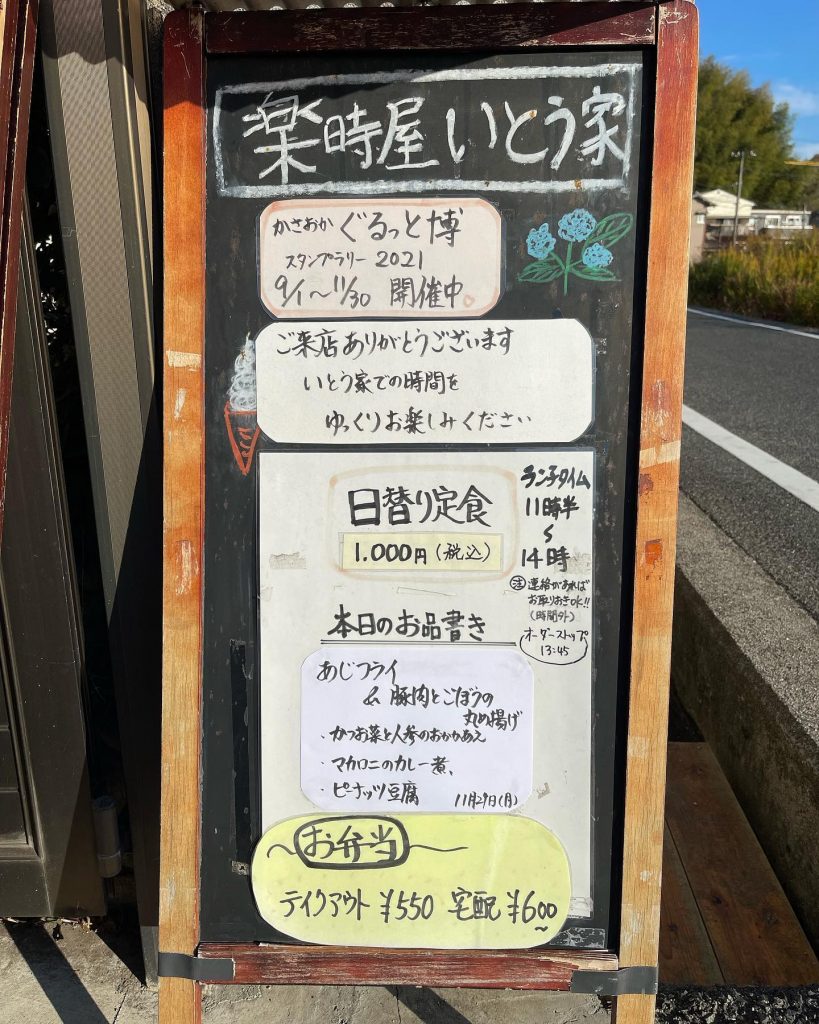 楽時屋 いとう家
かさおか ぐるっと博
スタンプラリー 2021
9/1〜11/30 開催中。
ご来店ありがとうございます
いとう家での時間を
ゆっくりお楽しみください
日替り定食
1.000円(税込)
ランチタイム
11時半
〜
14時
注 連絡があれば
お取りおきOK!!
(時間外)
オーダーストップ
13:45
本日のお品書き
あじフライ
& 豚肉とごぼうの
丸め揚げ
・かつお菜と人参のおかかあえ
・マカロニのカレー煮、
・ピーナッツ豆腐
11月29日(月)
〜お弁当〜
テイクアウト ¥550 宅配 ¥600〜